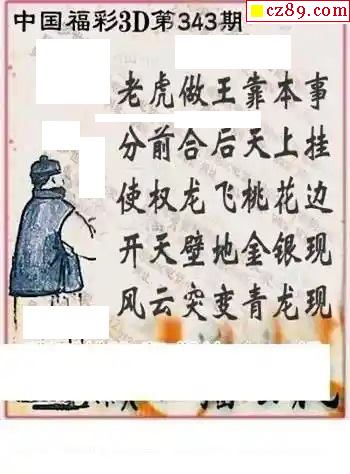 cz89.com
中国福彩3D第343期
老虎做王靠本事
分前合后天上挂
使权龙飞桃花边
开天壁地金银现
风云突变青龙现